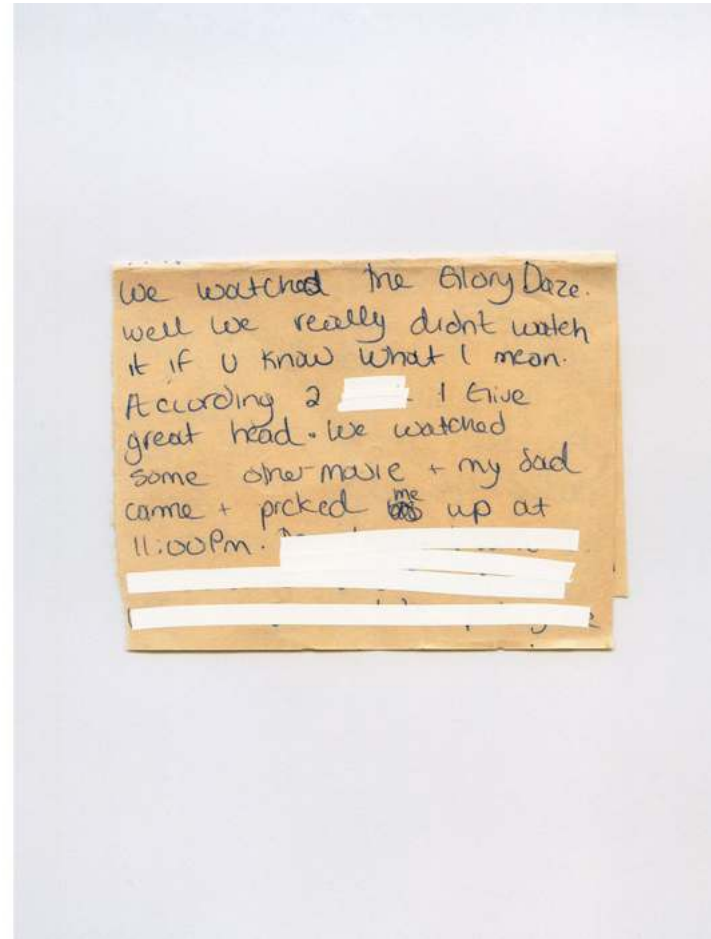 We watched the Glory Daze.
well we really didnt watch
it if U know what I mean.
According 2 I Give
great head. We watched
some other movie + my dad
came + picked me up at
11:00Pm.